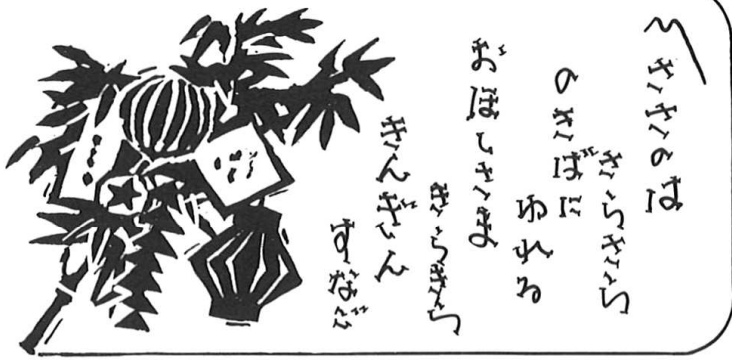 〽ささのは
さらさら
のきばに
ゆれる
おほしさま
きらきら
きんぎん
すなご